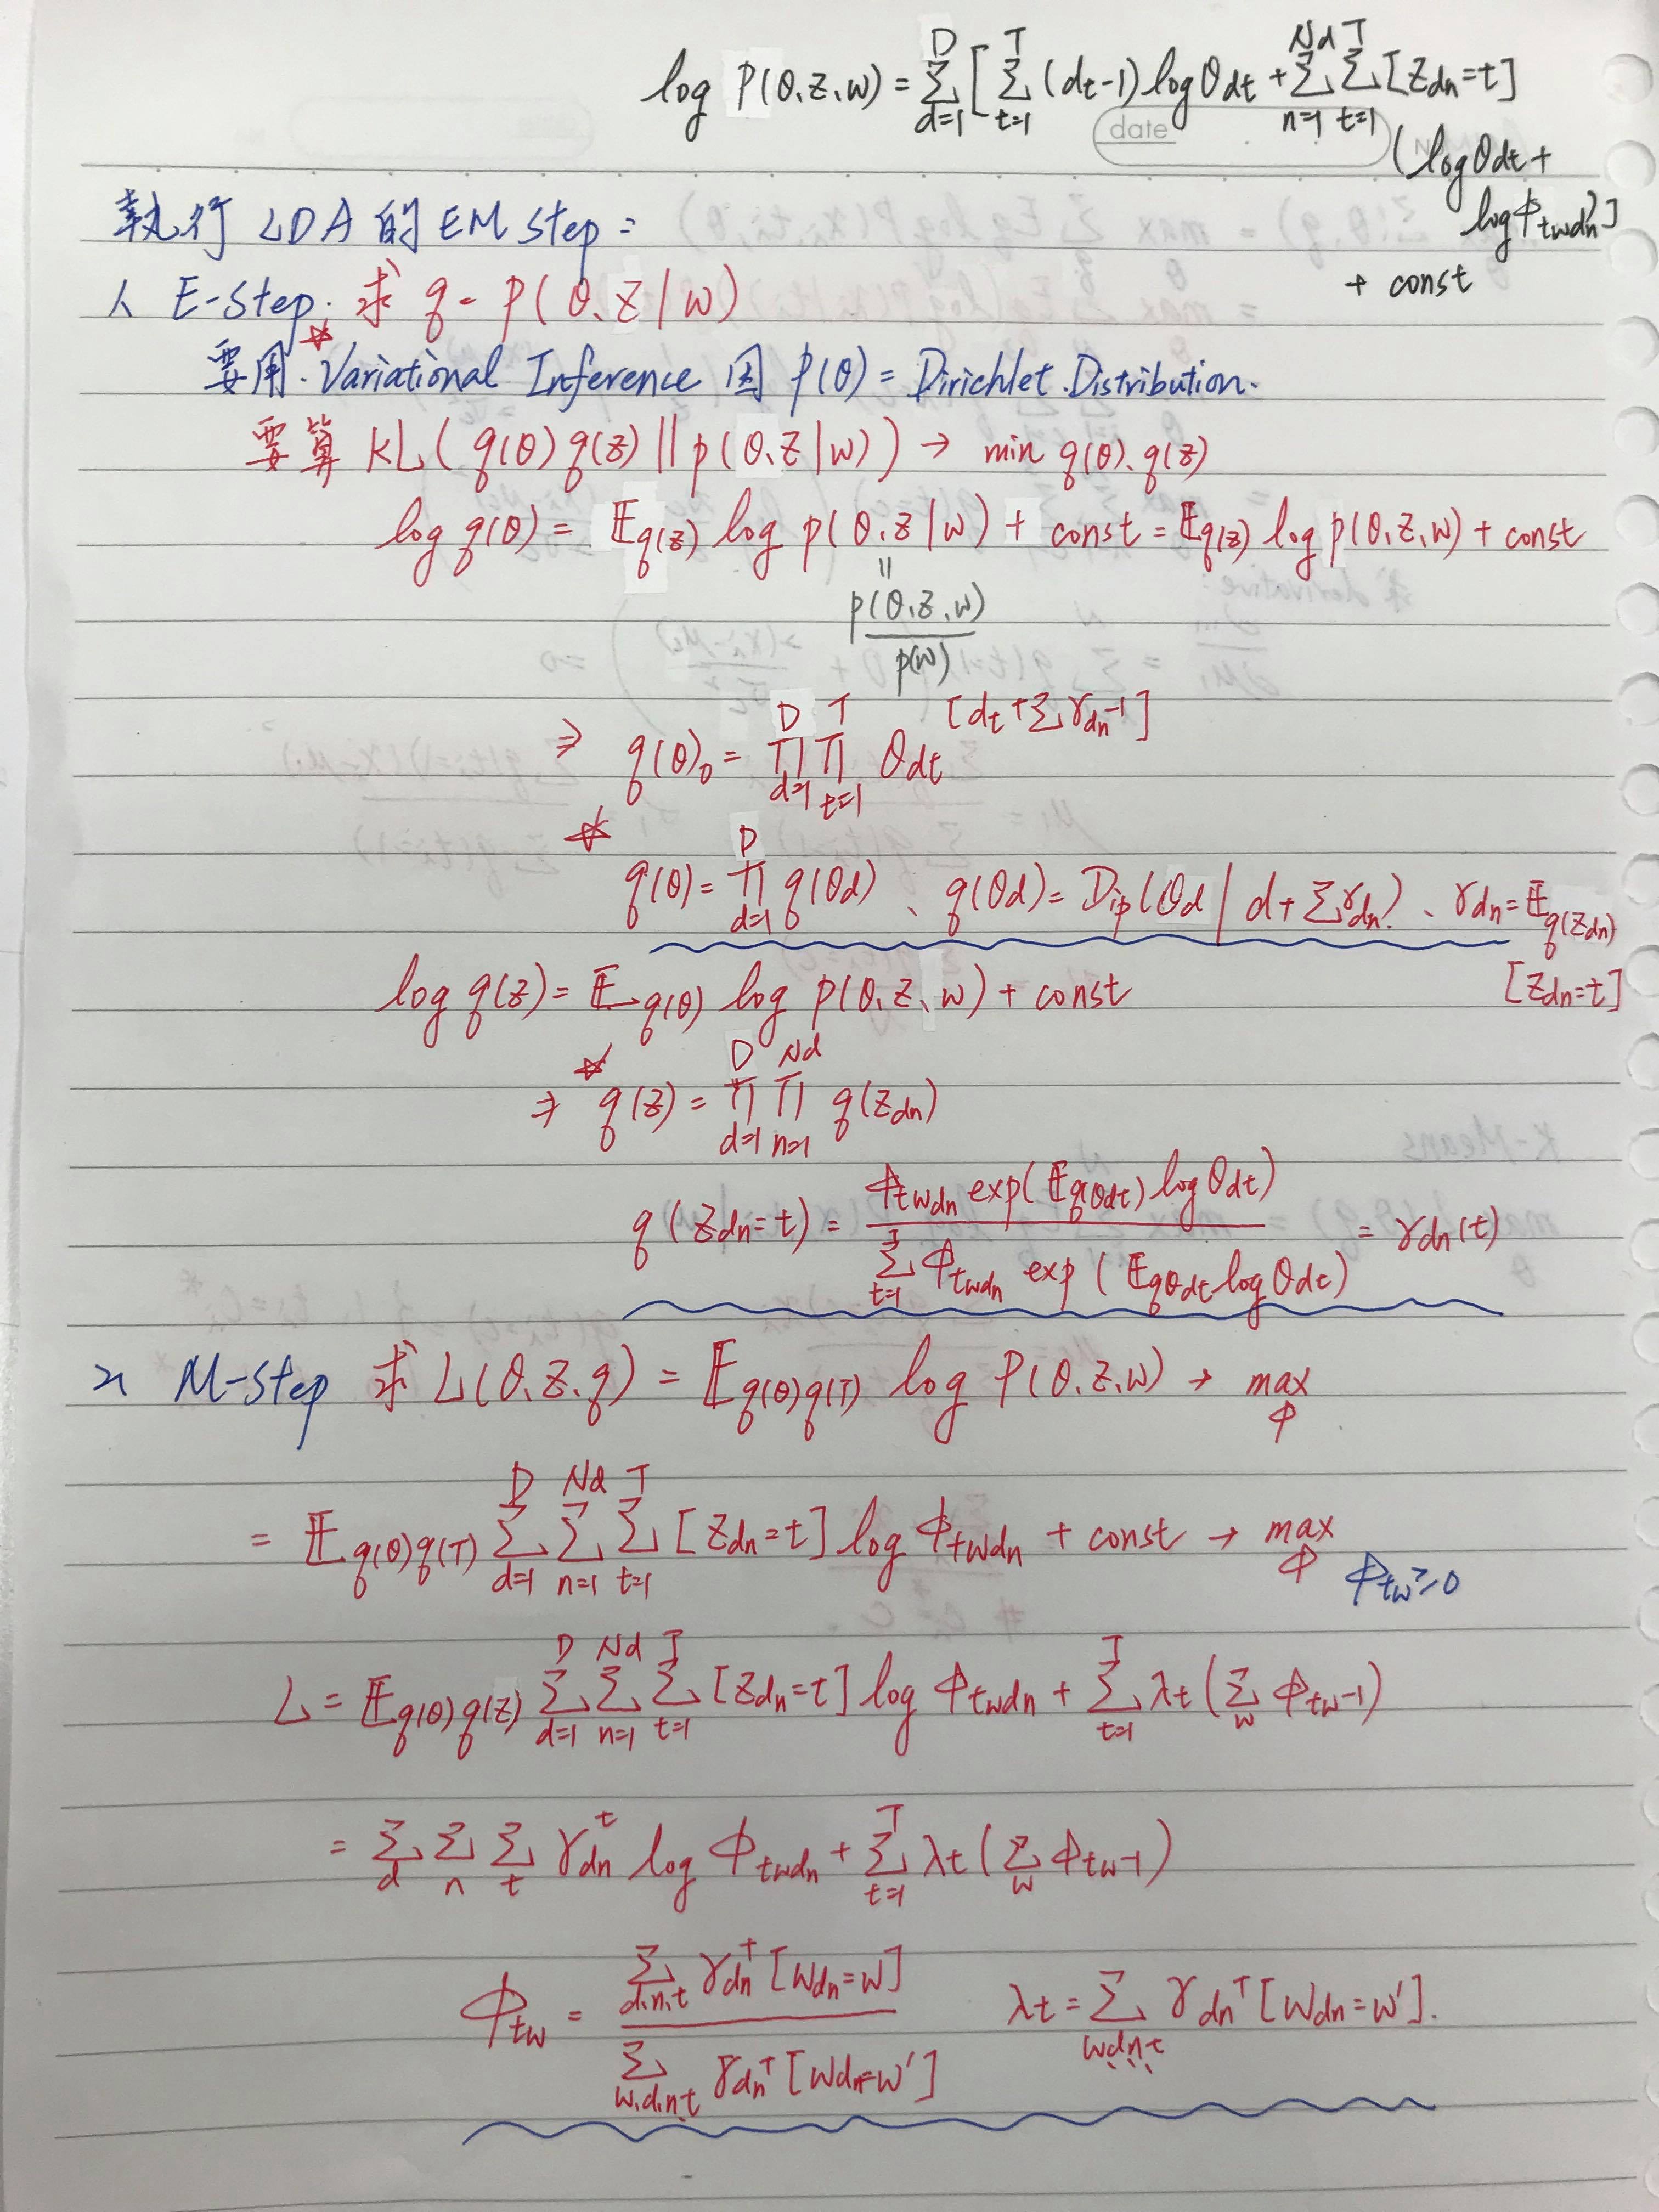 log P(θ,z,w) = Σ_{d=1}^{D} [ Σ_{t=1}^{T} (dt-1) log θdt + Σ_{n=1}^{Nd} Σ_{t=1}^{T} [Zdn=t]
date
(logθdt +
logΦtwdn)]
+ const
執行 LDA 的 EM Step :
1. E-Step : 求 q = p(θ、Z|w)
要用 Variational Inference 因 p(θ) = Dirichlet Distribution.
要算 KL( q(θ) q(z) || p(θ、Z|w) ) → min q(θ)、q(z)
log q(θ) = 𝔼q(z) log p(θ,z|w) + const = 𝔼q(z) log p(θ,z,w) + const
=
p(θ,z,w)
p(w)
⇒ q(θ) = Π_{d=1}^{D} Π_{t=1}^{T} θdt^{[dt+Σγdn-1]}
☆
q(θ) = Π_{d=1}^{D} q(θd) 、 q(θd) = Dir(θd | d+Σγdn) 、 γdn = 𝔼q(Zdn)
[Zdn=t]
log q(z) = 𝔼q(θ) log p(θ,z,w) + const
☆
⇒ q(z) = Π_{d=1}^{D} Π_{n=1}^{Nd} q(Zdn)
q(Zdn=t) = Φtwdn exp(𝔼q(θdt) log θdt) / Σ_{t=1}^{T} Φtwdn exp(𝔼qθdt log θdt) = γdn(t)
2. M-Step 求 L(θ,z,q) = 𝔼q(θ)q(T) log P(θ,z,w) → max Φ
= 𝔼q(θ)q(T) Σ_{d=1}^{D} Σ_{n=1}^{Nd} Σ_{t=1}^{T} [Zdn=t] log Φtwdn + const → max Φ
Φtw≥0
L = 𝔼q(θ)q(z) Σ_{d=1}^{D} Σ_{n=1}^{Nd} Σ_{t=1}^{T} [Zdn=t] log Φtwdn + Σ_{t=1}^{T} λt ( Σ_w Φtw-1 )
= Σ_d Σ_n Σ_t γdn^t log Φtwdn + Σ_{t=1}^{T} λt ( Σ_w Φtw-1 )
Φtw = Σ_{d,n,t} γdn^T [Wdn=w] / Σ_{w,d,n,t} γdn^T [Wdn=w'] λt = Σ_{w,d,n,t} γdn^T [Wdn=w'].